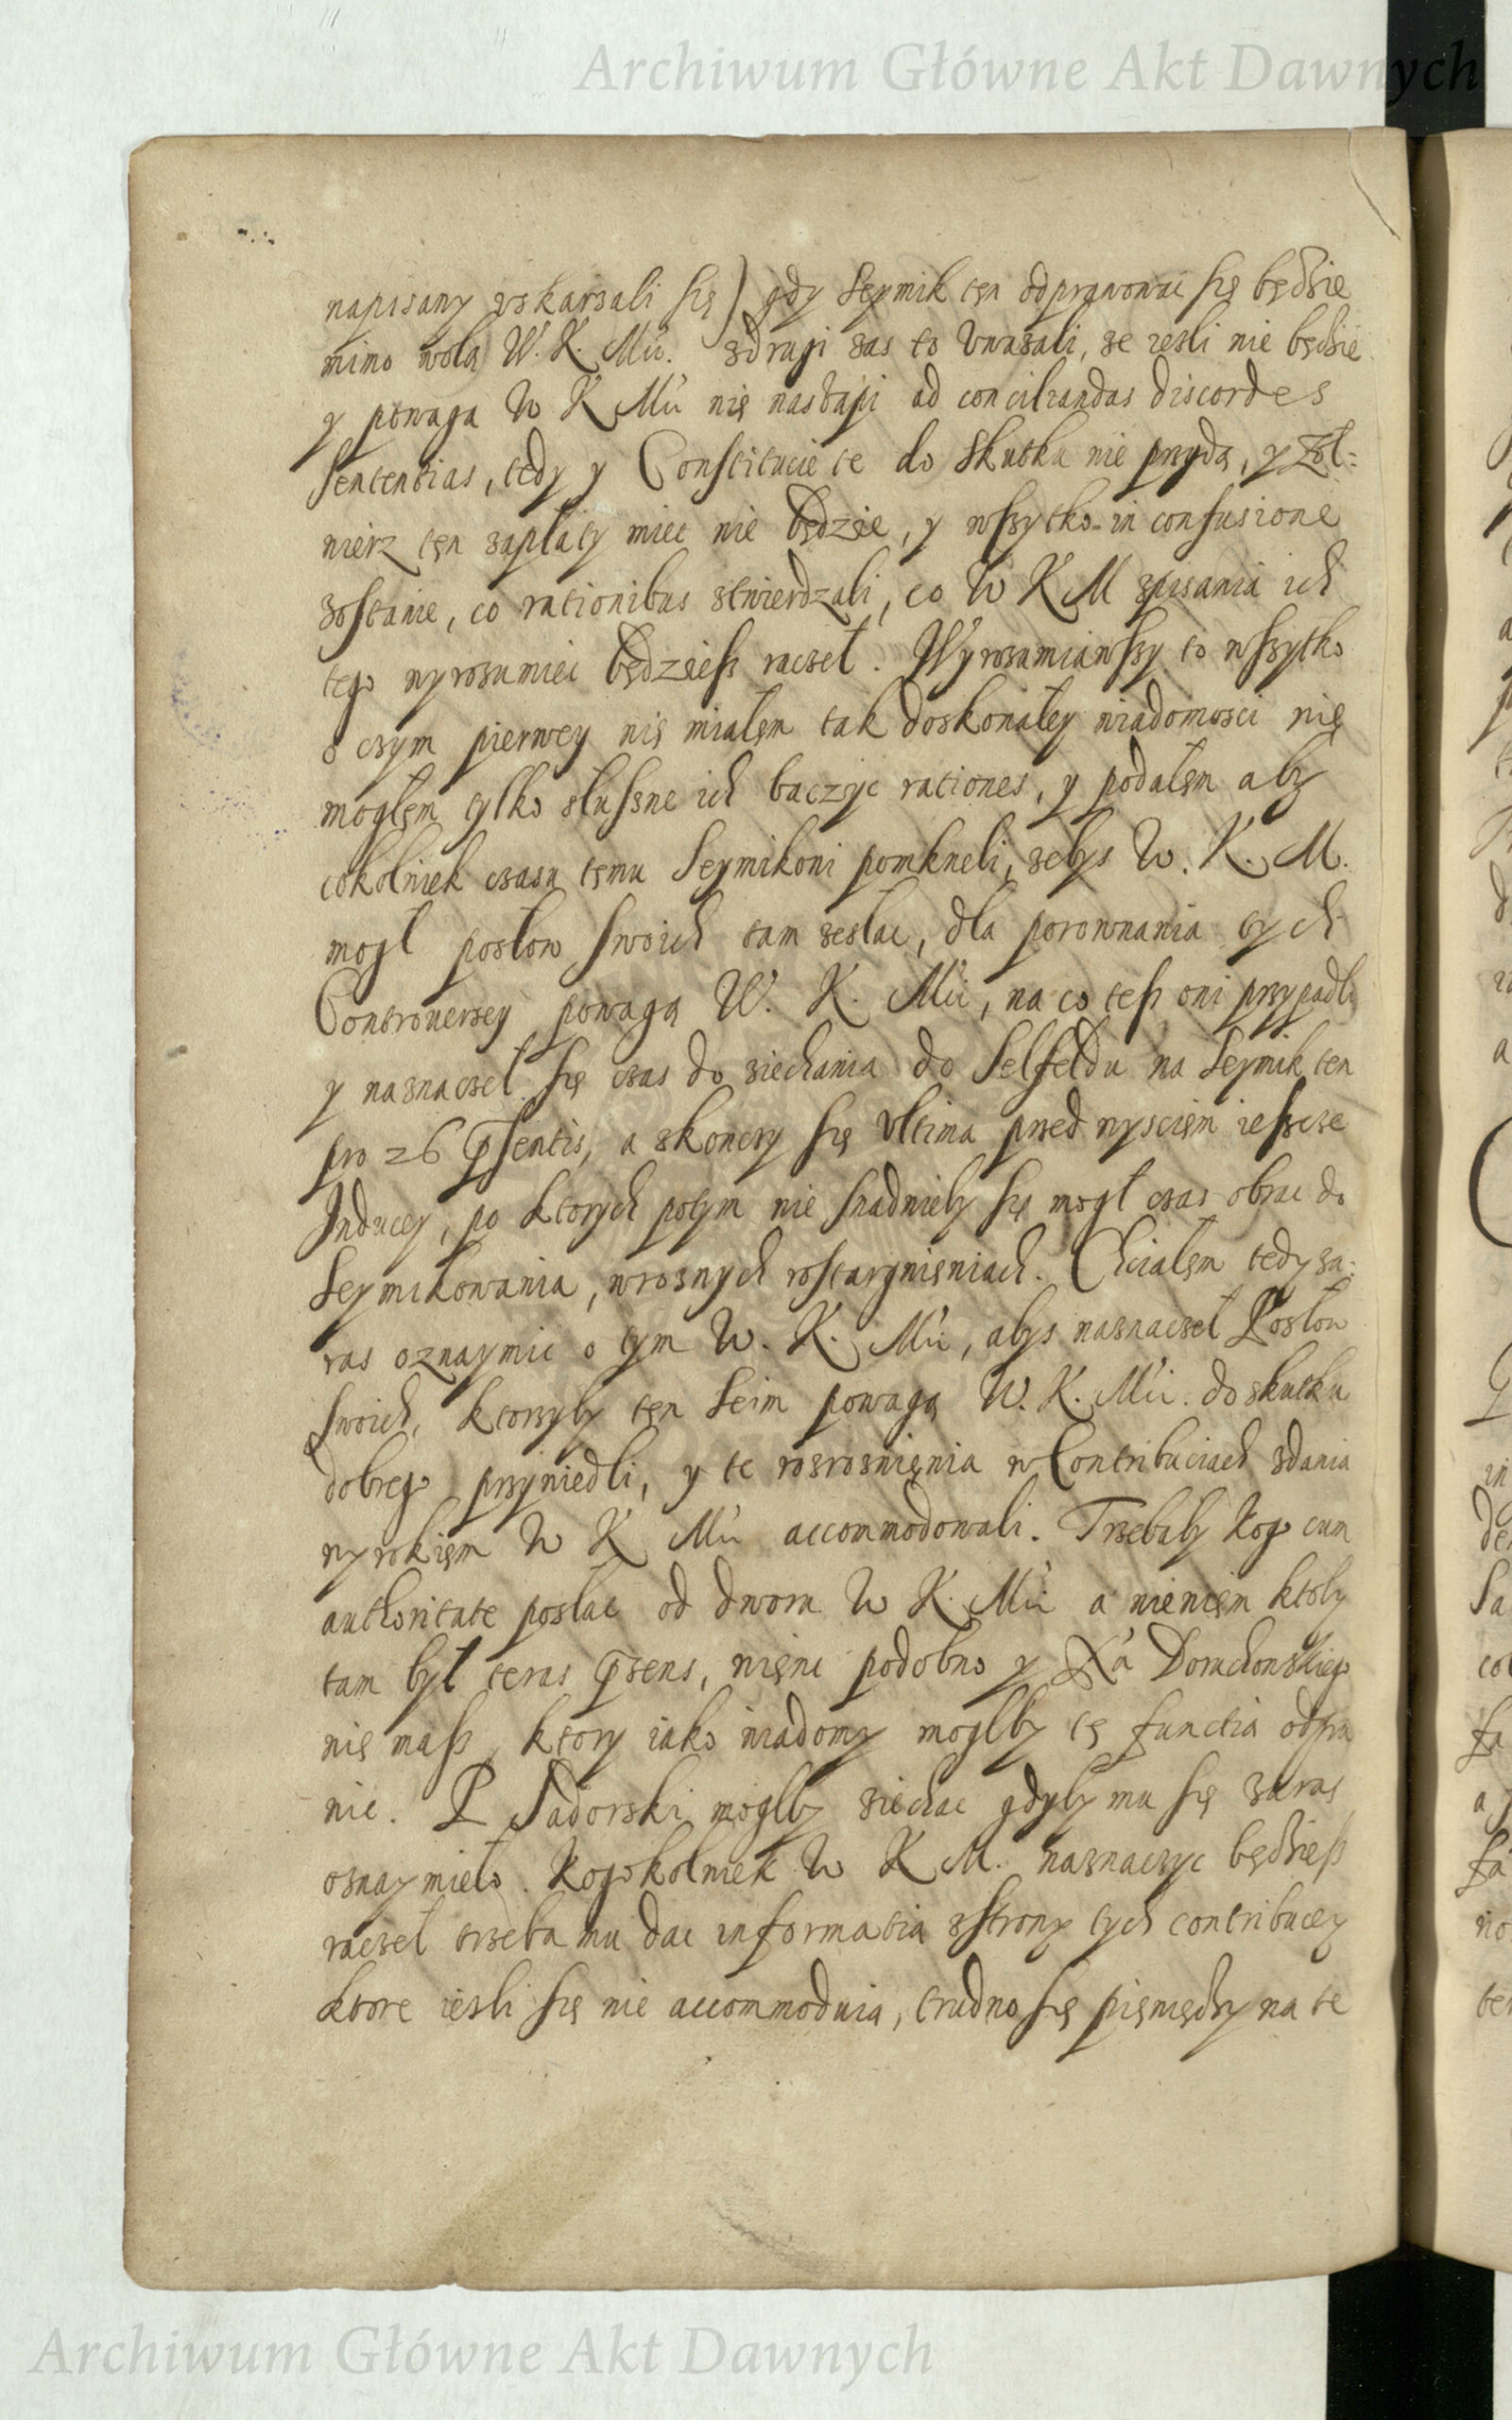 Archiwum Główne Akt Dawnych
napisany uskarzali się) gdy Seymik tęn odprawowac się będzie
mimo wolą W. K. Mći. zdrugi zas to unazali, ze iesli nie będzie
y powaga W K Mći nię nastąpi ad conciliandas discordes
sententias, tedy y Constitucie te do skutku nie przydą, y Zoł-
nierz tęn zapłaty miec nie będzie, y wszytko in confusione
zostanie, co rationibus stwierdzali, co W K M zpisania ich
tego wyrozumiec będziesz raczeł. Wyrozumiawszy to wszytko
o czym pierwey nię miałęm tak doskonałey wiadomosci nię
mogłęm tylko słuszne ich baczyc rationes, y podałęm aby
cokolwiek czasu tęmu Seymikowi pomkneli, zebys W. K. M.
mogł posłow swoich tam zesłac, dla porownania tych
Controuersey powagą W. K. Mći, na co tesz oni przypadli
y naznaczeł się czas do ziechania do Selfeldu na Seymik ten
pro 26 pͬsentis, a skonczy się vltima przed wysciem ieszcze
Inducey, po ktorych potym nie snadnieby się mogł czas obrac do
Seymikowania, w roznych rostargnięniach. Chciałęm tedy za-
raz oznaymic o tym W. K. Mći, abys naznaczeł Posłow
swoich, ktorzyby tęn Seim powagą W. K. Mći do skutku
dobrego przywiedli, y te rozroznięnia w Contribuciach zdania
wyrokięm W K Mći accommodowali. Trzebaby kogo cum
authoritate posłac od dworu W K. Mći a niewięm ktoby
tam był teraz pͬsens, nięmc podobno y Xa Doruchowskiego
nię masz, ktory iako wiadomy mogłby tę functią odpra
wic. P Sadorski mogłby ziechac gdyby mu się zaraz
oznaymieło. Kogokolwiek W K M. naznaczyc będziesz
raczeł trzeba mu dac informatią zstrony tych contribucey
ktore iesli się nie accommoduią, trudno się pięniędzy na te
Archiwum Główne Akt Dawnych